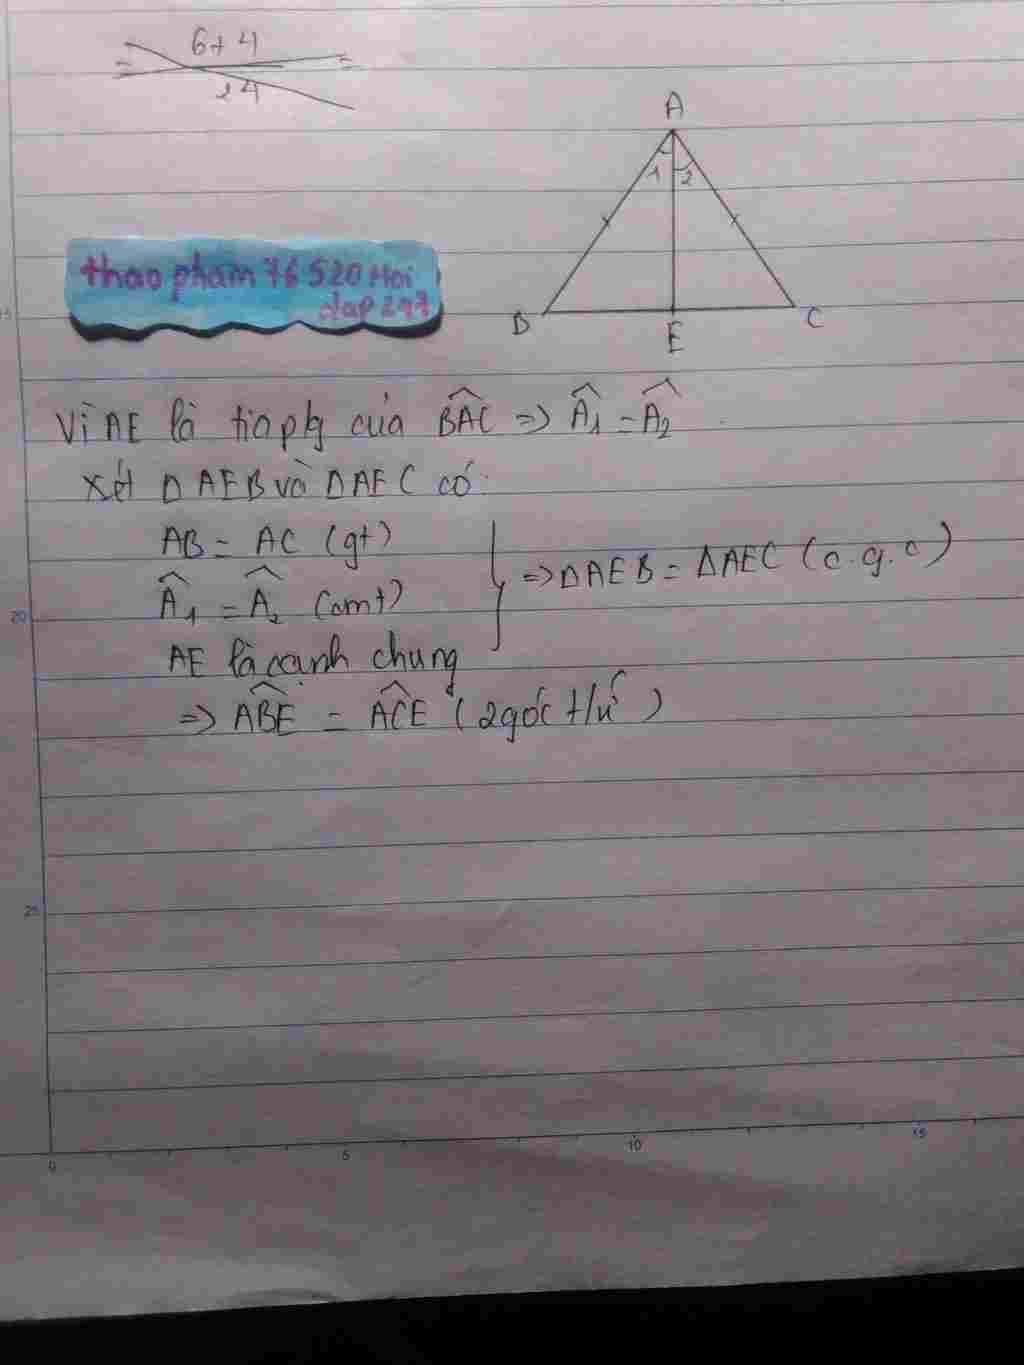 6+4
= =
24
A
1 2
thao pham 76520 Hoi
dap 247
B E C
Vì AE là tia p/g của BAC => Â1 = Â2
Xét Δ AEB và Δ AEC có:
AB = AC (gt)
Â1 = Â2 (cmt)
AE là cạnh chung
=> ΔAEB = ΔAEC (c.g.c)
=> ABE = ACE (2 góc t/ứ)
15
20
25
0 5 10 15